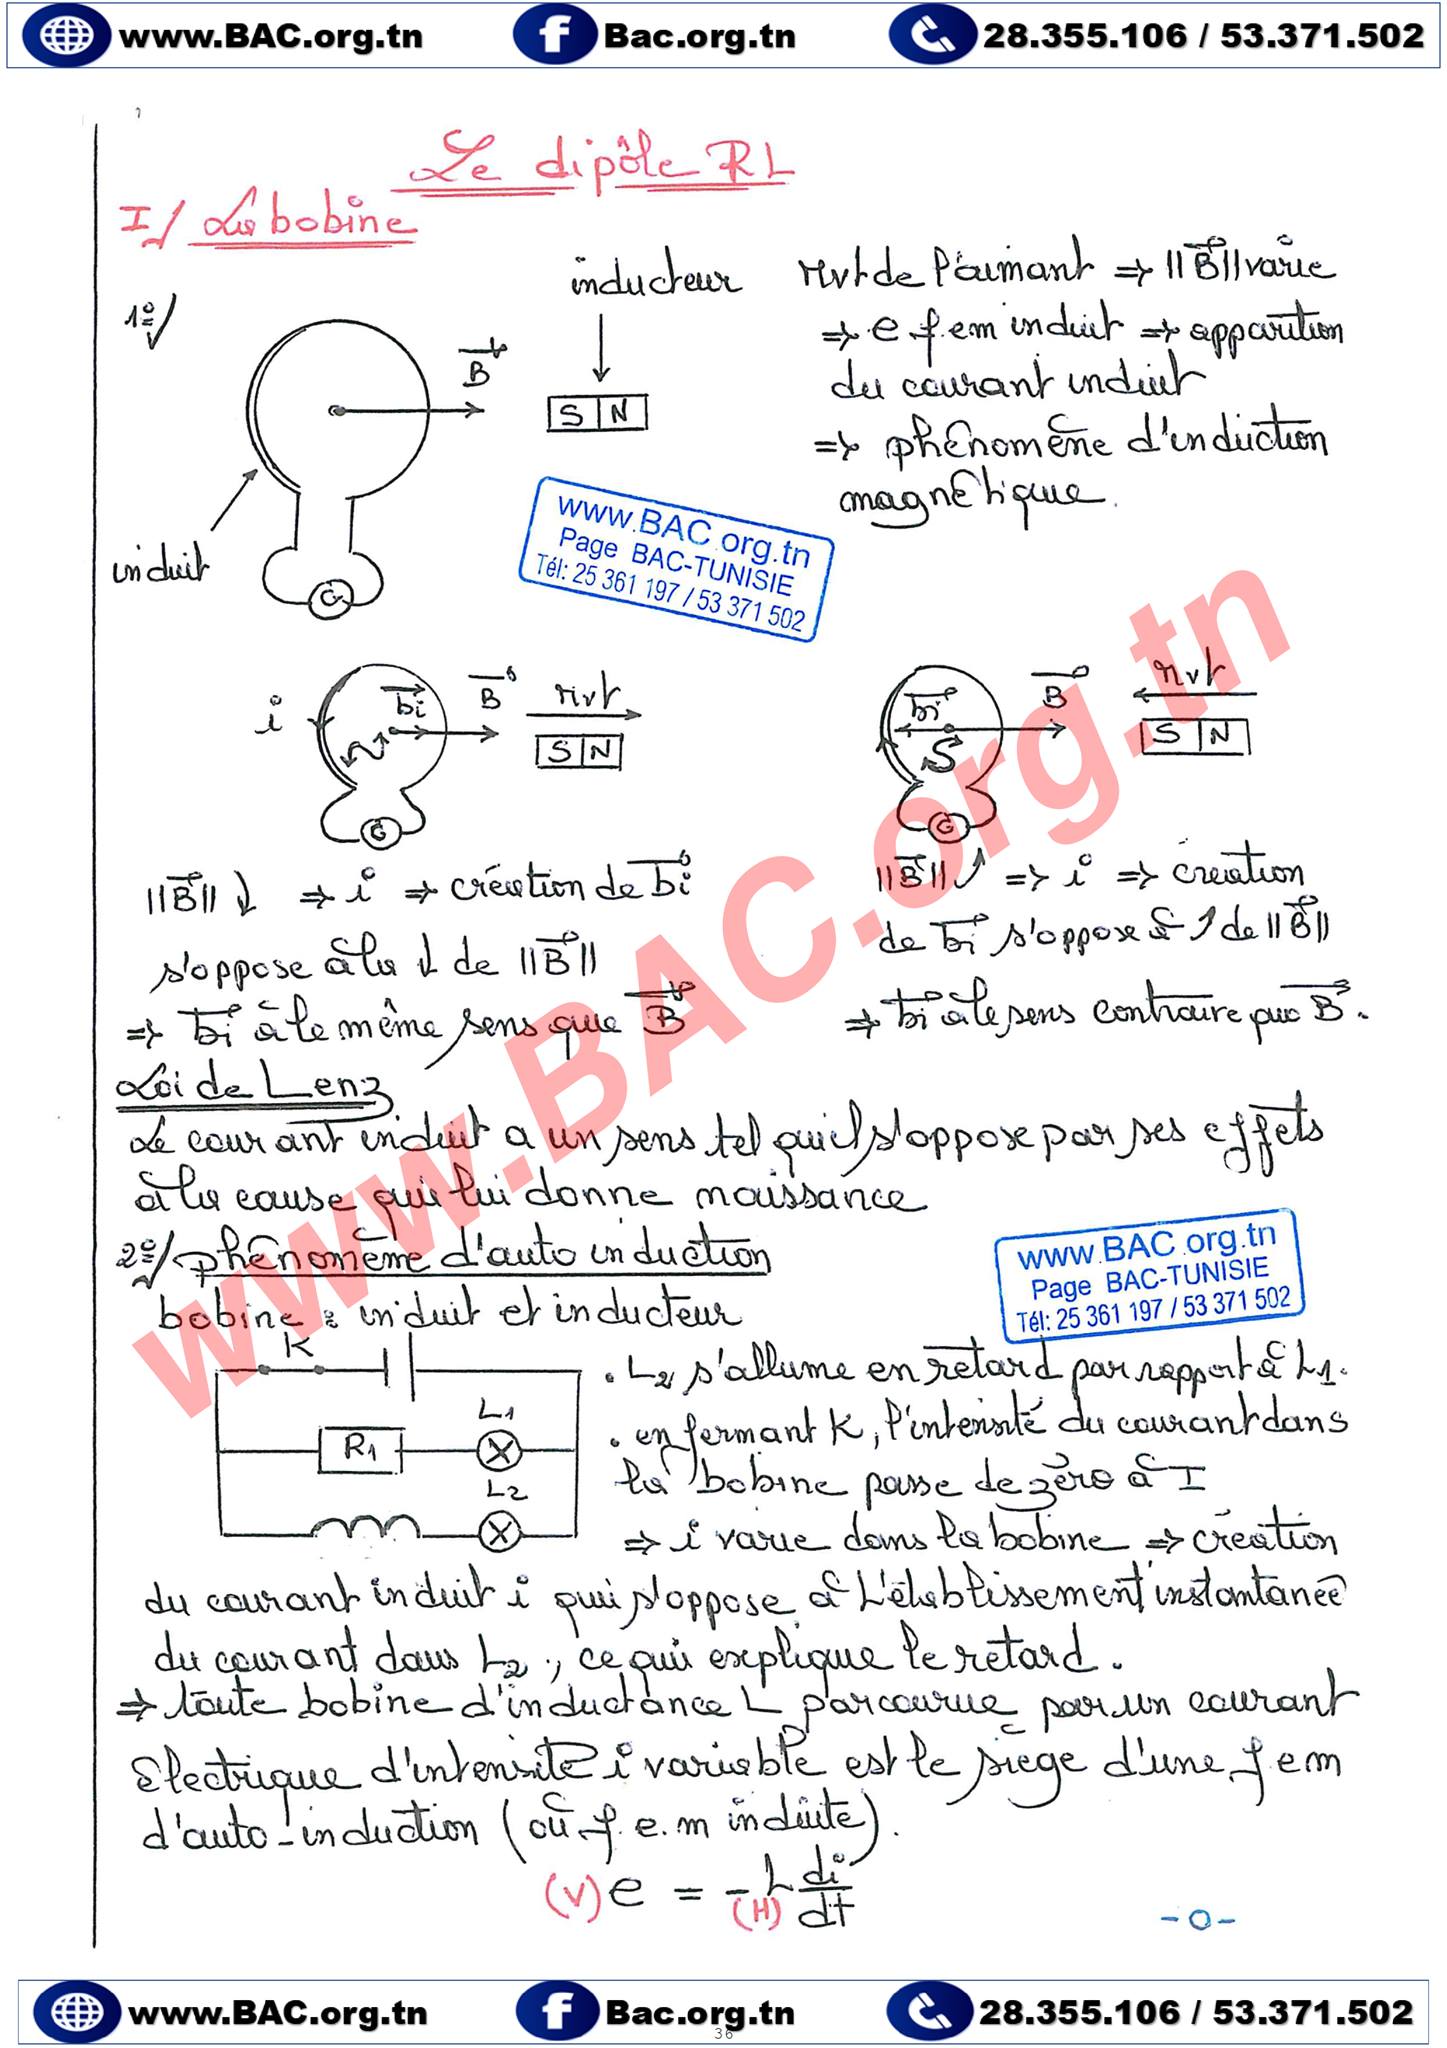 www.BAC.org.tn Bac.org.tn 28.355.106 / 53.371.502
Le dipôle RL
I/ La bobine
inducteur
mvt de l'aimant => ||B|| varie
1°/
=> e f em induit => apparition
B
du courant induit
S N
=> phénomène d'induction
magnétique.
induit
G
www.BAC.org.tn
Page BAC-TUNISIE
Tél: 25 361 197 / 53 371 502
i
bi
B
mvt
S N
N
G
bi
B
mvt
S N
S
G
||B|| ↓ => i => création de bi
s'oppose à la ↓ de ||B||
=> bi à le même sens que B
||B|| ↗ => i => création
de bi s'oppose à ↗ de ||B||
=> bi à le sens contraire que B.
Loi de Lenz
Le courant induit a un sens tel qu'il s'oppose par ses effets
à la cause qui lui donne naissance
2°/ phénomème d'auto induction
bobine : induit et inducteur
www.BAC.org.tn
Page BAC-TUNISIE
Tél: 25 361 197 / 53 371 502
K
R1
L1
L2
. L2 s'allume en retard par rapport à L1.
. en fermant K, l'intensité du courant dans
la bobine passe de zéro à I
=> i varie dans la bobine => création
du courant induit i qui s'oppose à l'établissement instantané
du courant dans L2, ce qui explique le retard.
=> toute bobine d'inductance L parcourue par un courant
électrique d'intensité i variable est le siège d'une f em
d'auto-induction (où f.e.m induite).
(V) e = - L di/dt
(H)
-0-
www.BAC.org.tn
www.BAC.org.tn Bac.org.tn 28.355.106 / 53.371.502
36